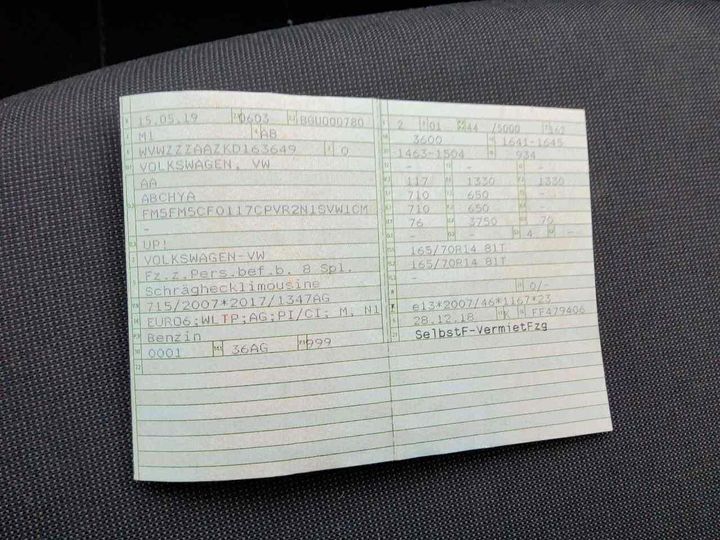 15.05.19 0603 BGU000780
M1 AB
WVWZZZAAZKD163649 0
VOLKSWAGEN, VW
AA
ABCHYA
FM5FM5CF0117CPVR2N1SVW1CM
-
UP!
VOLKSWAGEN-VW
Fz.z.Pers.bef.b. 8 Spl.
Schräghecklimousine
715/2007*2017/1347AG
EURO6;WLTP;AG;PI/CI; M, N1
Benzin
0001 36AG 999
2 01 44 /5000 162
3600 1641-1645
1463-1504 934
- - -
117 1330 1330
710 650 -
710 650 -
76 3750 70
- - 4 -
165/70R14 81T
165/70R14 81T
-
- 0/-
e13*2007/46*1167*23
28.12.18 K FF479406
SelbstF-VermietFzg